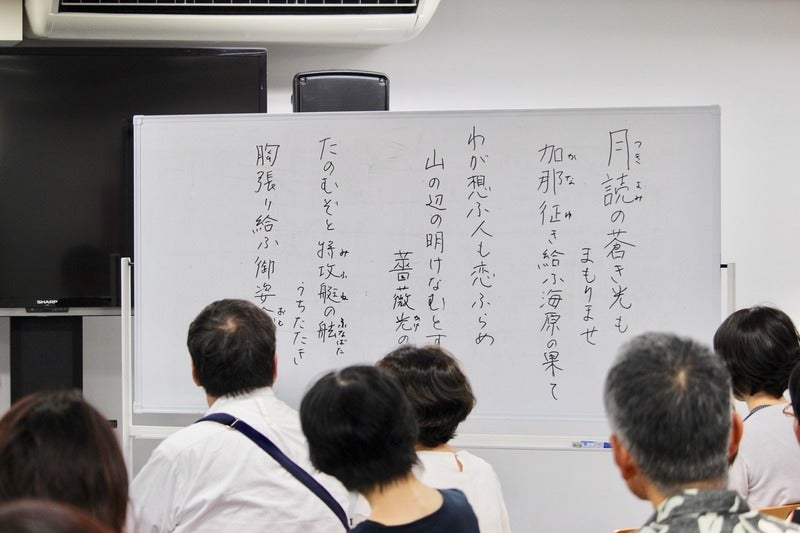 つき よみ
月読の蒼き光も
まもりませ
かな ゆ
加那征き給ふ海原の果て
わが想ふ人も恋ふらめ
山の辺の明けなむとす
かげ
薔薇光の
みふね ふなばた
たのむぞと特攻艇の舷
うちたたき
胸張り給ふ御姿
SHARP